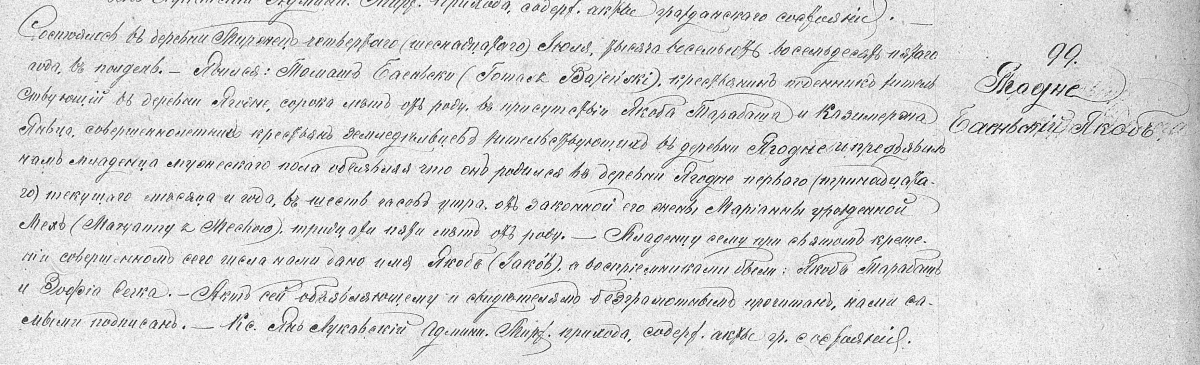 прихода, содерж. акты гражданскаго состоянія. —
Состоялось въ деревни четвертаго (шеснадцатаго) Іюля, тысяча восемьсотъ восемьдесятъ пятаго
года, въ полдень. — Явился: Томашъ Баеньски (Tomasz Bajeński), крестьянинъ житель
ствующій въ деревни Ягодне, сорока лѣтъ отъ роду, въ присутствіи Якоба Тарабаша и Казимержа
совершеннолѣтнихъ крестьянъ земледѣльцевъ жительствующихъ въ деревни Ягодне и предъявилъ
намъ младенца мужескаго пола объявляя что онъ родился въ деревни Ягодне перваго (тринадцата-
го) текущаго мѣсяца и года, въ шесть часовъ утра, отъ законной его жены Маріанны урожденной
Мехъ (Maryanny z Mechów), тридцати пяти лѣтъ отъ роду. — Младенцу сему при святомъ креще-
ніи совершенномъ сего числа нами дано имя Якобъ (Jakób), а воспріемниками были: Якобъ Тарабашъ
и Зофіа — Актъ сей объявляющему и свидѣтелямъ безграмотнымъ прочитанъ, нами са-
мыми подписанъ. — Кс. Янъ Лукавскій Админи. прихода, содерж. акты гр. состоянія.
99.
Ягодне
Баеньскій Якобъ